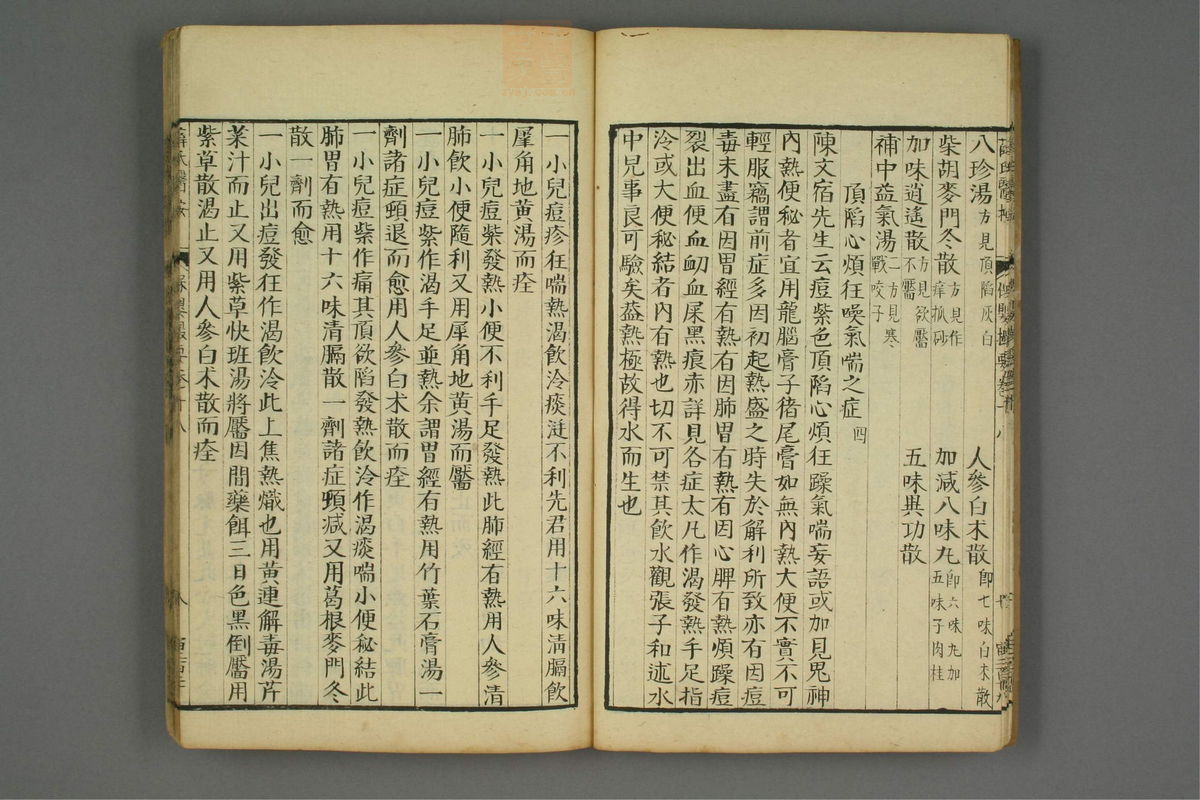 八珍湯方見頂陷灰白 人參白朮散即七味白朮散
柴胡麥門冬散方見作痒抓破 加減八味丸即六味丸加五味子肉桂
加味逍遙散方見欲靨不靨 五味異功散
補中益氣湯二方見寒戰咬牙
頂陷心煩狂噪氣喘之症四
陳文宿先生云痘紫色頂陷心煩狂躁氣喘妄語或如見鬼神
內熱便秘者宜用龍腦膏子猪尾膏如無內熱大便不實不可
輕服竊謂前症多因初起熱盛之時失於解利所致亦有因痘
毒未盡有因胃經有熱有因肺胃有熱有因心脾有熱煩躁痘
裂出血便血衂血屎黑痕赤詳見各症太凡作渴發熱手足指
冷或大便秘結者內有熱也切不可禁其飲水觀張子和述水
中兒事良可驗矣蓋熱極故得水而生也
一小兒痘疹狂喘熱渴飲冷痰涎不利先君用十六味清膈飲
犀角地黃湯而痊
一小兒痘紫發熱小便不利手足發熱此肺經有熱用人參清
肺飲小便隨利又用犀角地黃湯而靨
一小兒痘紫作渴手足並熱余謂胃經有熱用竹葉石膏湯一
劑諸症頓退而愈用人參白朮散而痊
一小兒痘紫作痛其頂欲陷發熱飲冷作渴痰喘小便秘結此
肺胃有熱用十六味清膈散一劑諸症頓減又用葛根麥門冬
散一劑而愈
一小兒出痘發狂作渴飲冷此上焦熱熾也用黃連解毒湯芹
菜汁而止又用紫草快斑湯將靨因間藥餌三日色黑倒靨用
紫草散渴止又用人參白朮散而痊
薛氏醫按 保嬰撮要卷十八